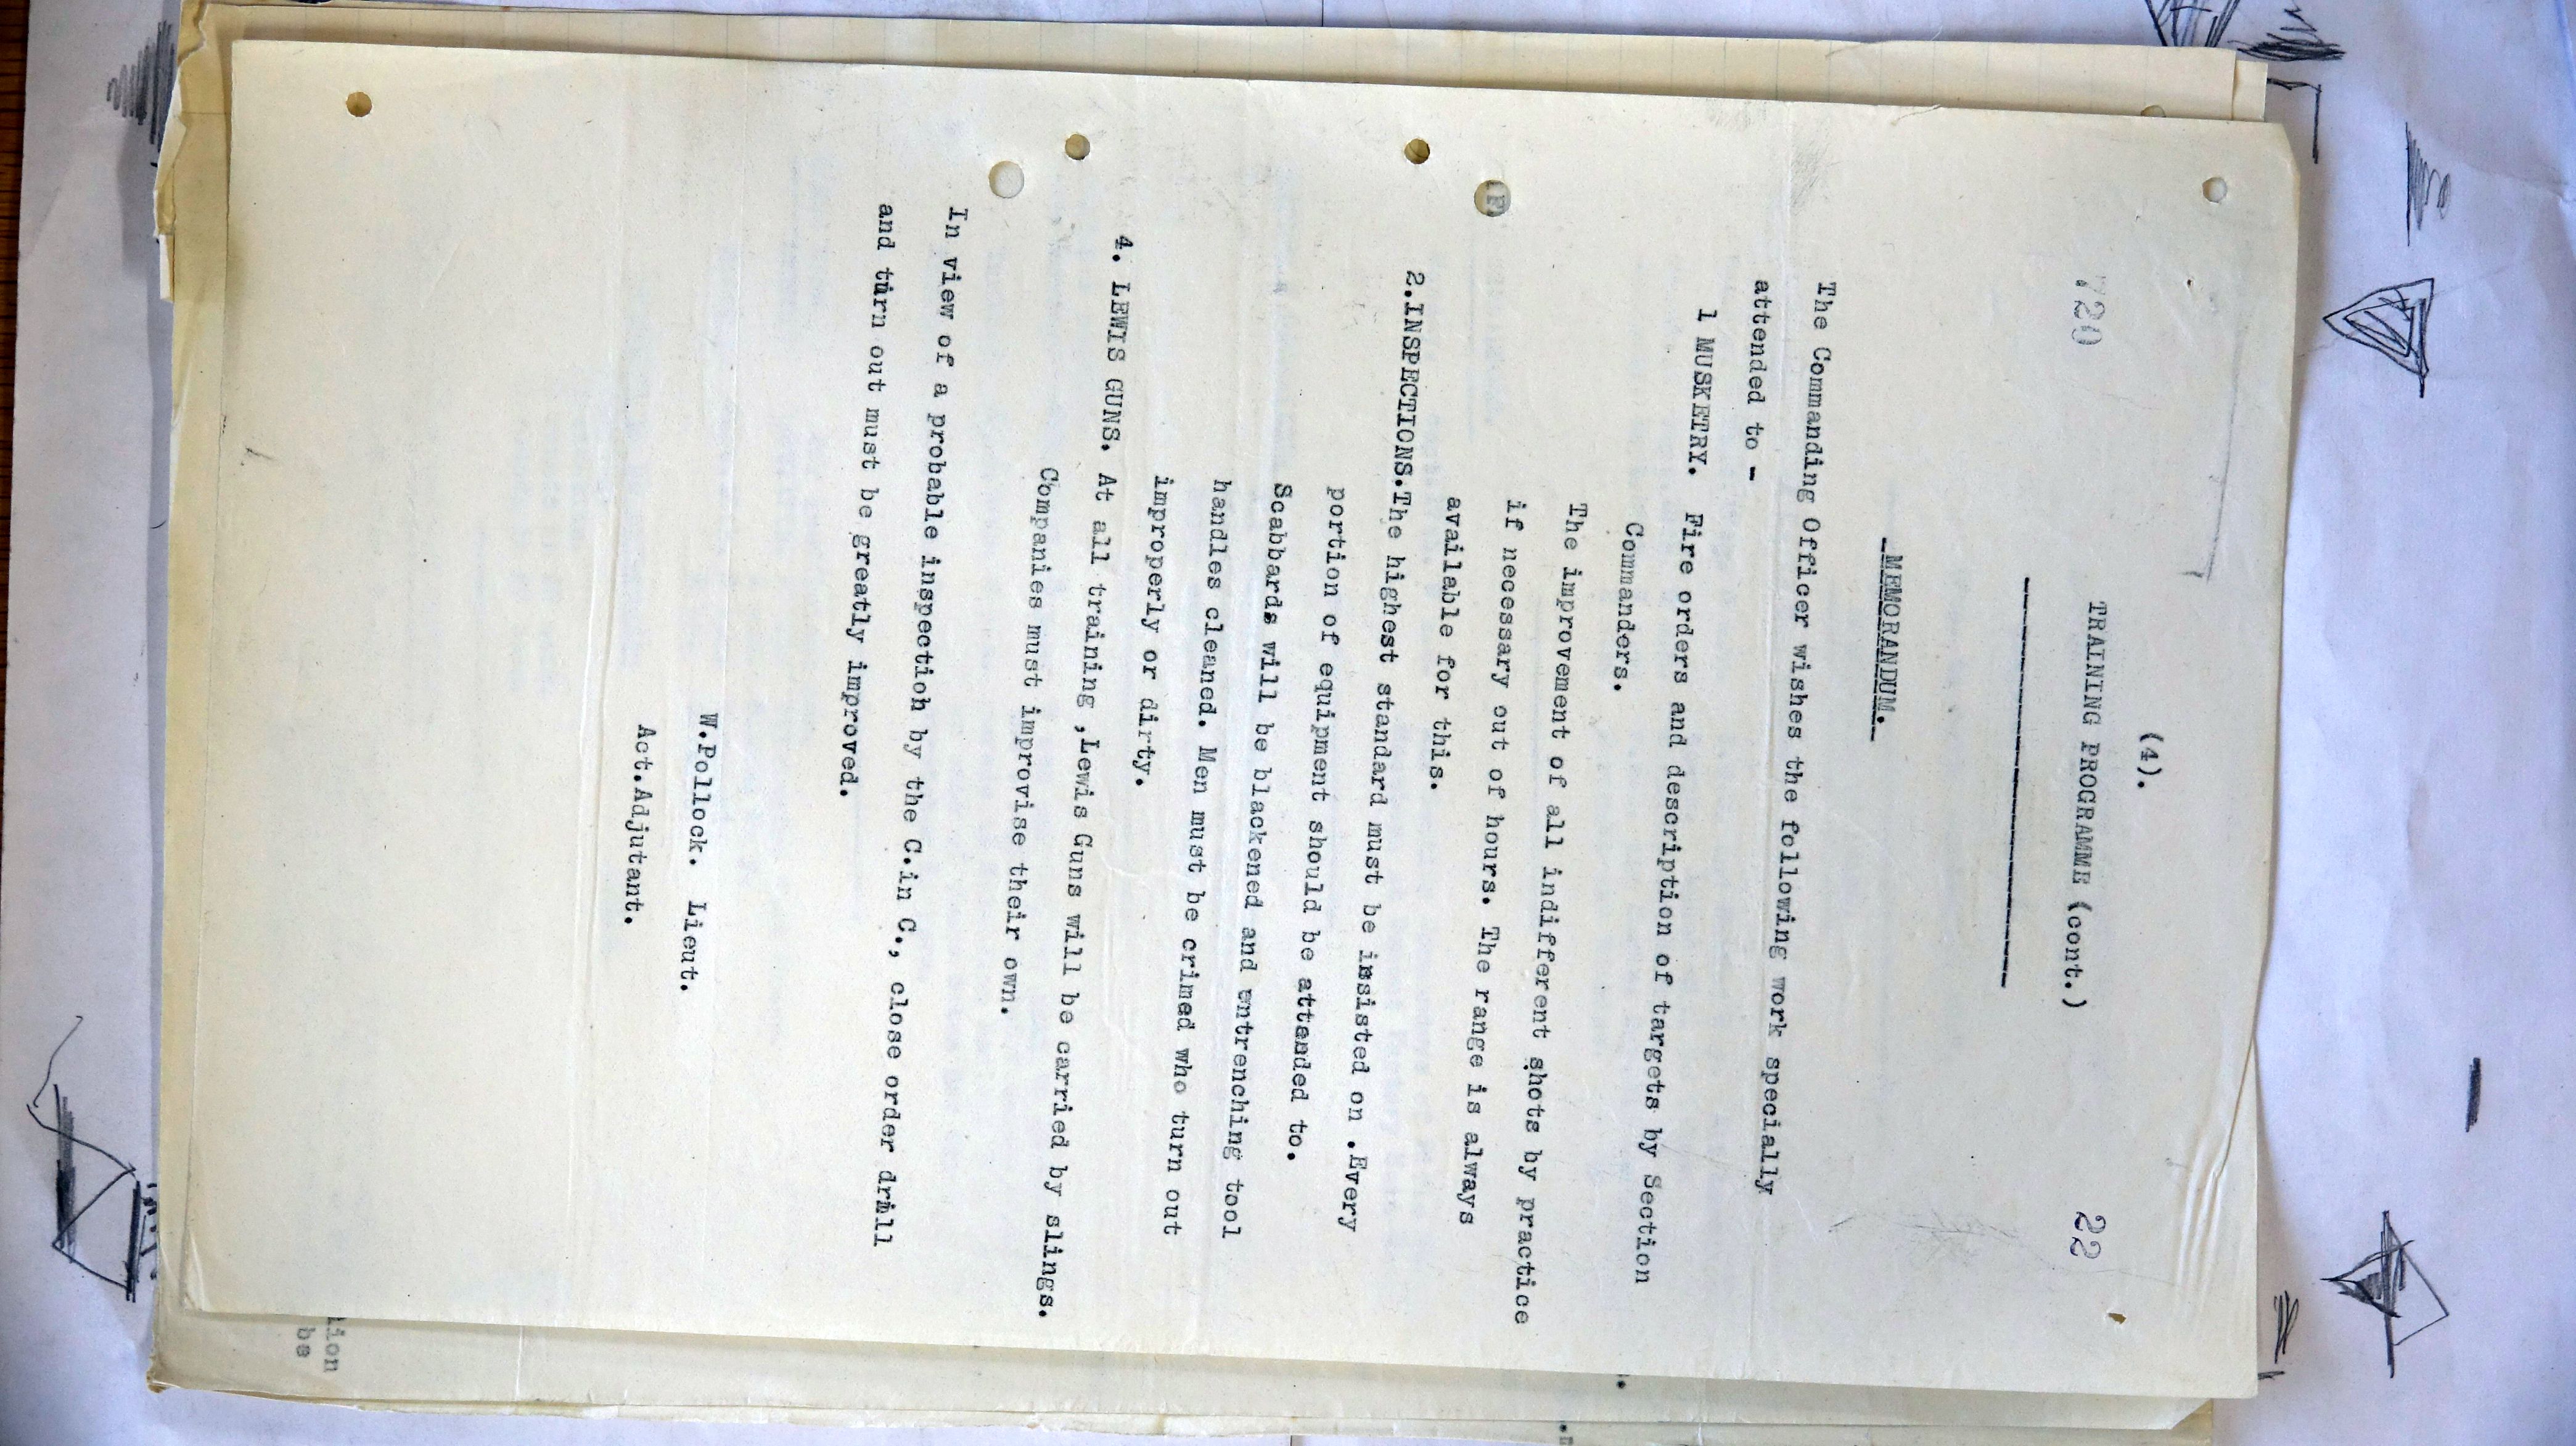 (4).
720
TRAINING PROGRAMME (cont.)
22
MEMORANDUM.
The Commanding Officer wishes the following work specially
attended to -
1 MUSKETRY. Fire orders and description of targets by Section
Commanders.
The improvement of all indifferent shots by practice
if necessary out of hours. The range is always
available for this.
2.INSPECTIONS.The highest standard must be insisted on .Every
portion of equipment should be attended to.
Scabbards will be blackened and entrenching tool
handles cleaned. Men must be crimed who turn out
improperly or dirty.
4. LEWIS GUNS. At all training ,Lewis Guns will be carried by slings.
Companies must improvise their own.
In view of a probable inspection by the C.in C., close order drill
and turn out must be greatly improved.
W.Pollock. Lieut.
Act.Adjutant.
ion
be